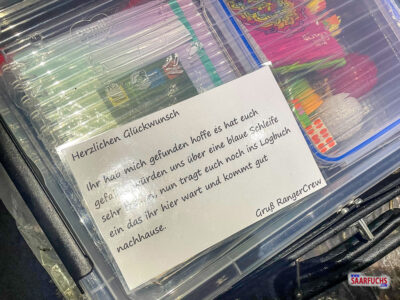 Herzlichen Glückwunsch
Ihr hab mich gefunden hoffe es hat euch
gefa würden uns über eine blaue Schleife
sehr nun tragt euch noch ins Logbuch
ein das ihr hier wart und kommt gut
nachhause.
Gruß RangerCrew
SAARFUCHS